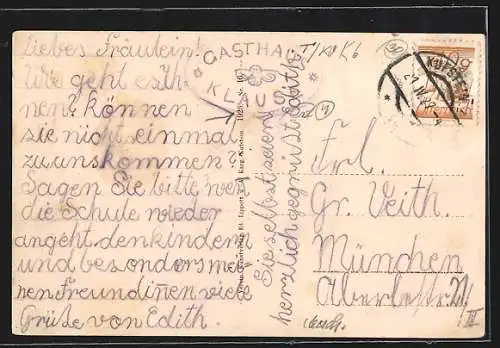 Liebes Fräulein!
Wie geht es ih-
nen? können
sie nicht einmal
zu uns kommen?
Sagen Sie bitte wen
die Schule wieder
angeht den kinden
und besonders mei
nen Freundinnen viele
Grüße von Edith.
Sie selbst seien
herzlich gegrüßt Edith
GASTHA
KLAUS
KUFST
Frl.
Gr. Veith.
München
Aberlestr. 21/
III